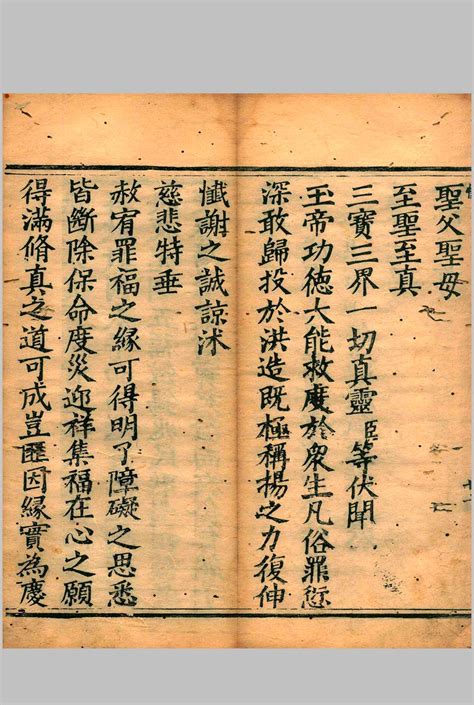 聖父聖母
至聖至真
三寶三界一切真靈臣等伏聞
玉帝功德大能救度於衆生凡俗罪愆
深敢歸投於洪造既極稱揚之力復伸
懺謝之誠諒沐
慈悲特垂
赦宥罪福之緣可得明了障礙之思悉
皆斷除保命度災迎祥集福在心之願
得滿脩真之道可成豈匪因緣實為慶